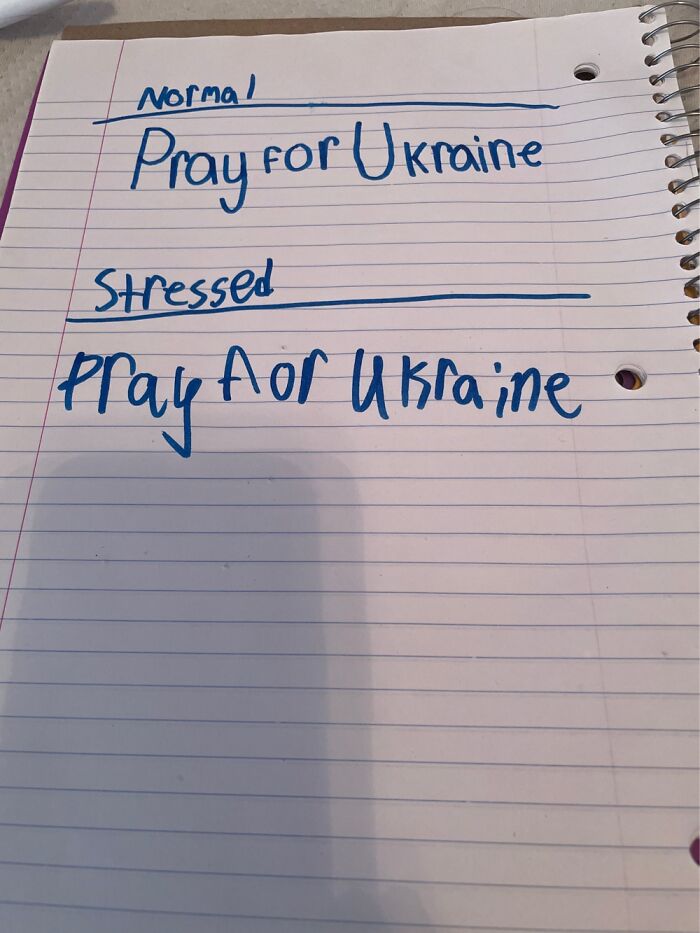 Normal
Pray For Ukraine
Stressed
Pray for Ukraine